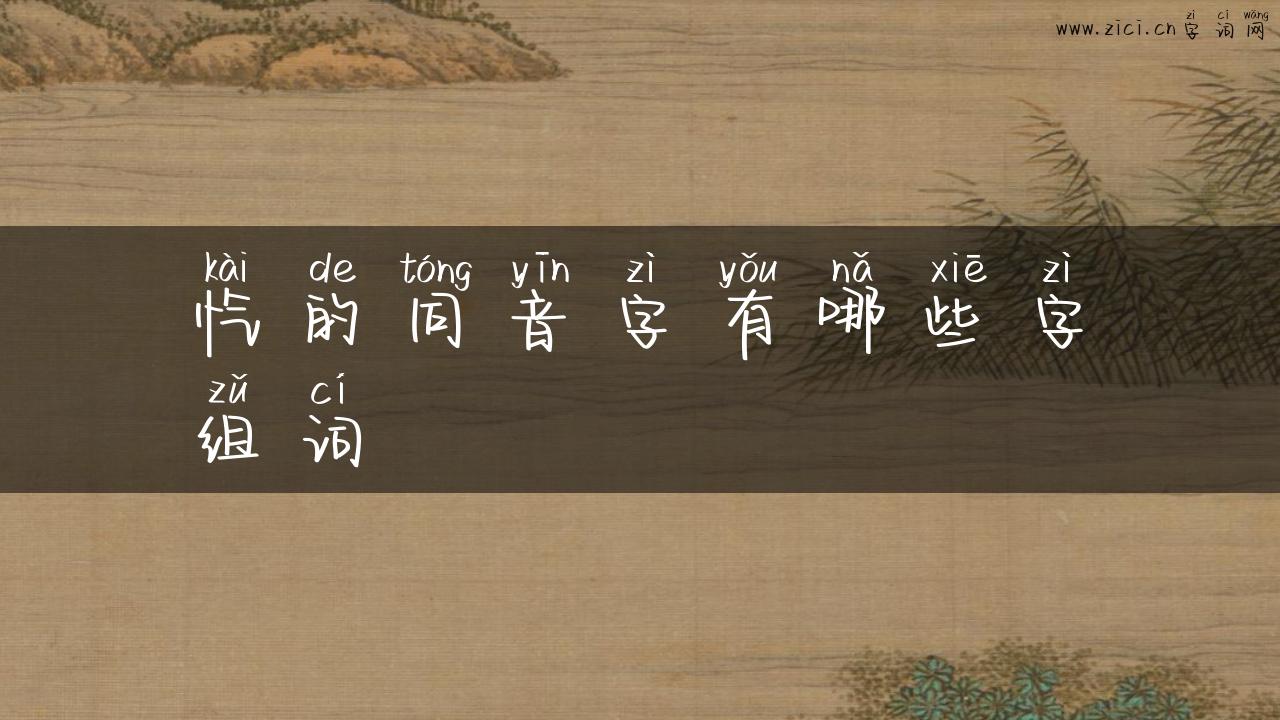 zì cí wǎng
www.zici.cn 字 词 网
kài de tóng yīn zì yǒu nǎ xiē zì
忾 的 同 音 字 有 哪 些 字
zǔ cí
组 词